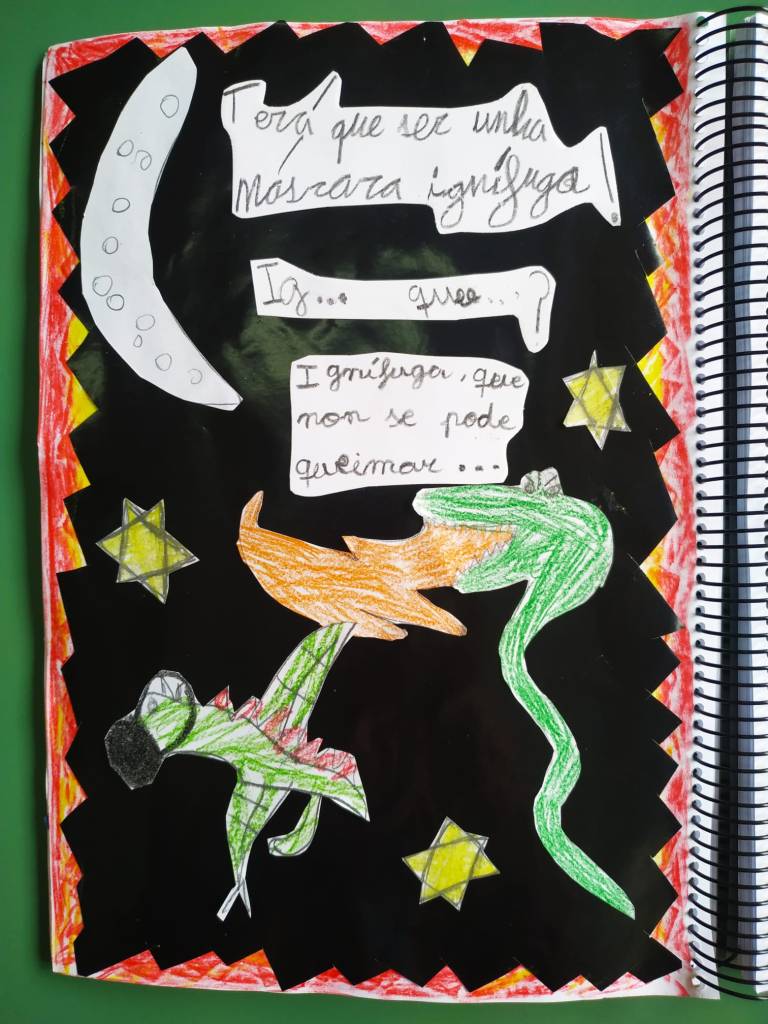 Terá que ser unha
máscara ignífuga!
Ig... quee...?
Ignífuga, que
non se pode
queimar...